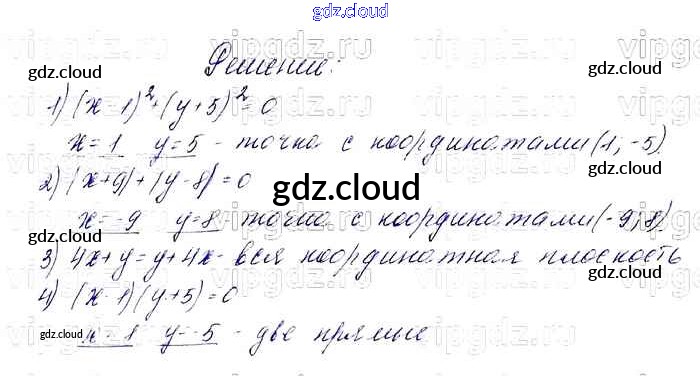 gdz.cloud
Решение:
1) (x-1)²+(y+5)²=0
x=1 y=5 - точка с координатами (1; -5)
2) |x+9|+|y-8|=0
x=-9 y=8 - точка с координатами (-9; 8)
3) 4x+y=y+4x - вся координатная плоскость
4) (x-1)(y+5)=0
x=1 y=-5 - две прямые
gdz.cloud
gdz.cloud
gdz.cloud
gdz.cloud
vipgdz.ru
vipgdz.ru
vipgdz.ru